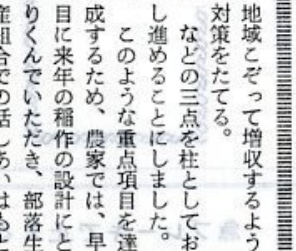 地域こぞって増収するよう
対策をたてる。
などの三点を柱としてお
し進めることにしました。
このような重点項目を達
成するため、農家では、早
目に来年の稲作の設計にと
りくんでいただき、部落生
産組合での話しあいはもと